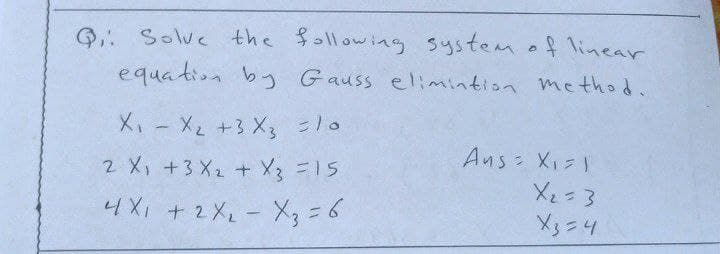 Q1: Solve the following system of linear
equation by Gauss elimintion method.
X₁ - X₂ + 3 X₃ = 10
2 X₁ + 3 X₂ + X₃ = 15
4 X₁ + 2 X₂ - X₃ = 6
Ans: X₁ = 1
X₂ = 3
X₃ = 4